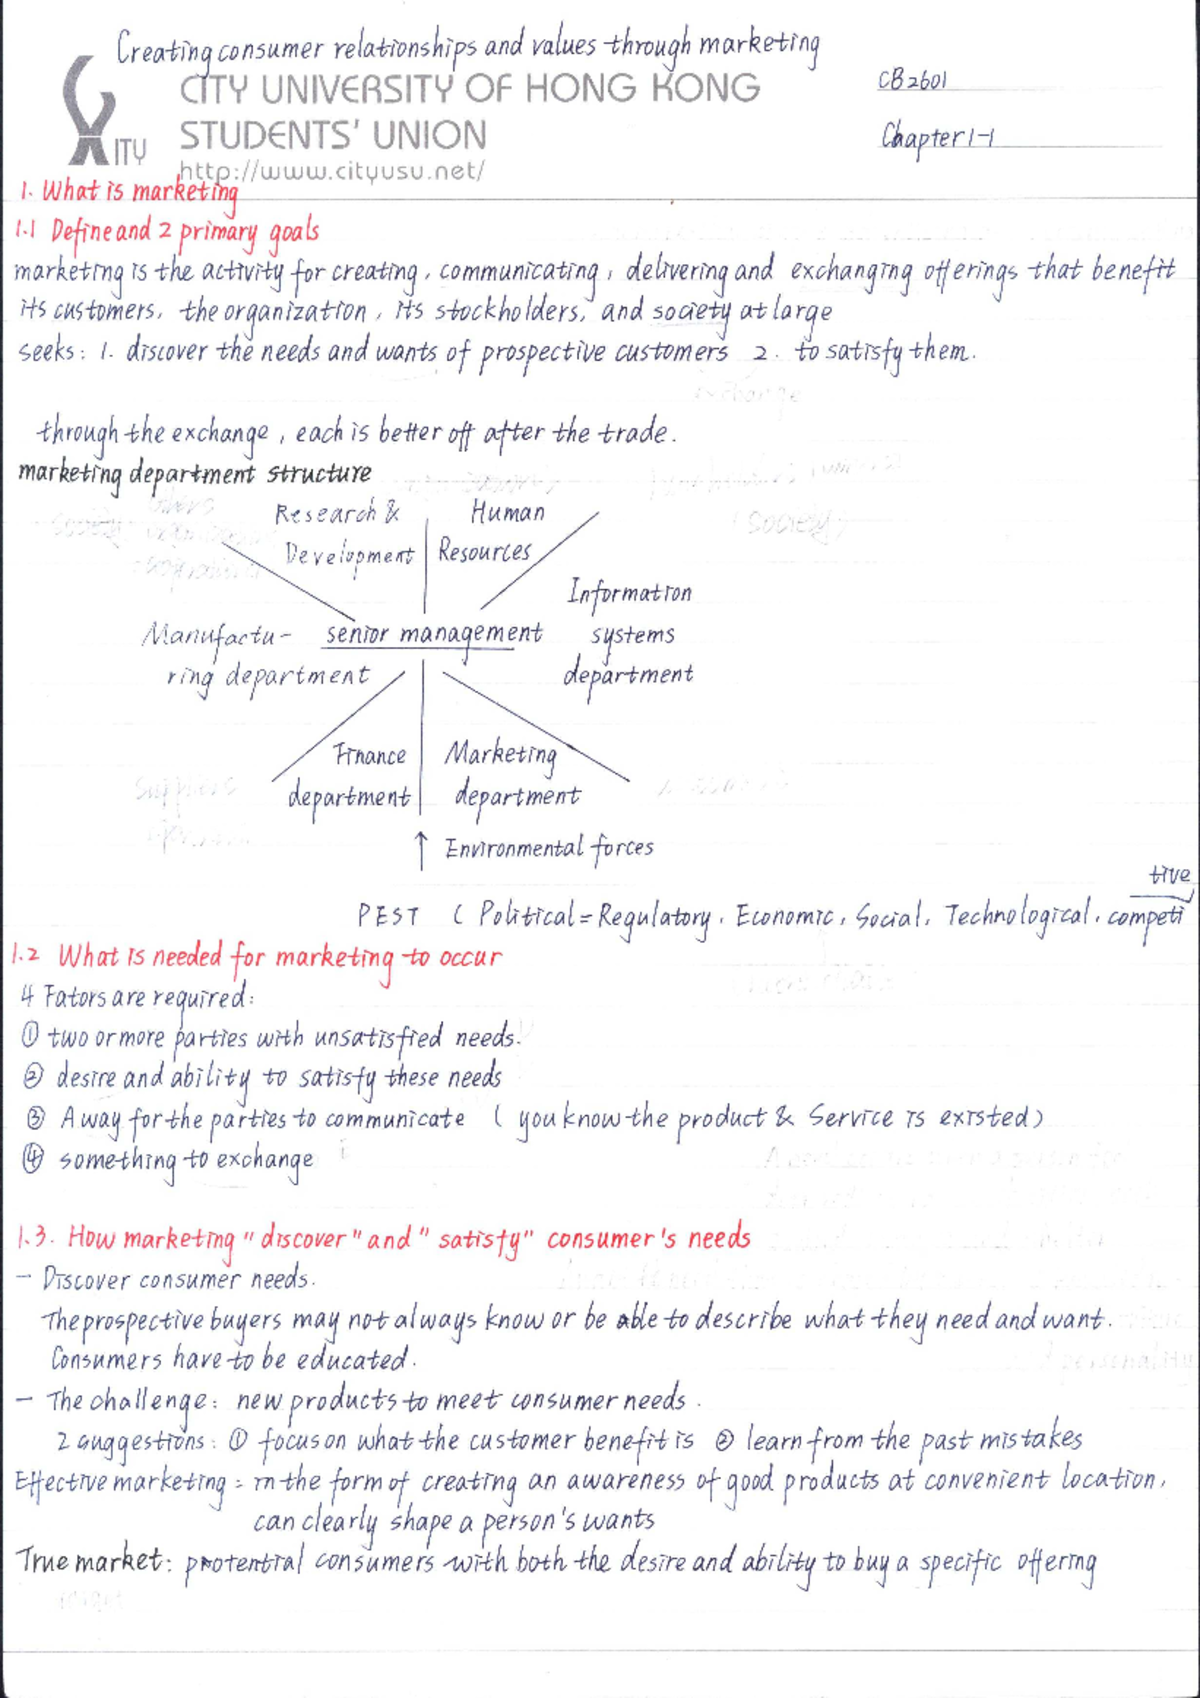 Creating consumer relationships and values through marketing
CITY UNIVERSITY OF HONG KONG
STUDENTS' UNION
http://www.cityusu.net/
CITY
CB2601
Chapter 1-1
1. What is marketing
1.1 Define and 2 primary goals
marketing is the activity for creating, communicating, delivering and exchanging offerings that benefit
its customers, the organization, its stockholders, and society at large
seeks: 1. discover the needs and wants of prospective customers 2. to satisfy them.
through the exchange, each is better off after the trade.
marketing department structure
Research &
Development
Human
Resources
Information
systems
department
Manufactu-
ring department
senior management
Finance
department
Marketing
department
↑ Environmental forces
PEST ( Political = Regulatory, Economic, Social, Technological, competi
tive
1.2 What is needed for marketing to occur
4 Fators are required:
① two or more parties with unsatisfied needs.
② desire and ability to satisfy these needs
③ A way for the parties to communicate ( you know the product & Service is existed)
④ something to exchange
1.3. How marketing "discover" and "satisfy" consumer's needs
- Discover consumer needs.
The prospective buyers may not always know or be able to describe what they need and want.
Consumers have to be educated.
- The challenge: new products to meet consumer needs.
2 suggestions: ① focus on what the customer benefit is ② learn from the past mistakes
Effective marketing = in the form of creating an awareness of good products at convenient location,
can clearly shape a person's wants
True market: protential consumers with both the desire and ability to buy a specific offering